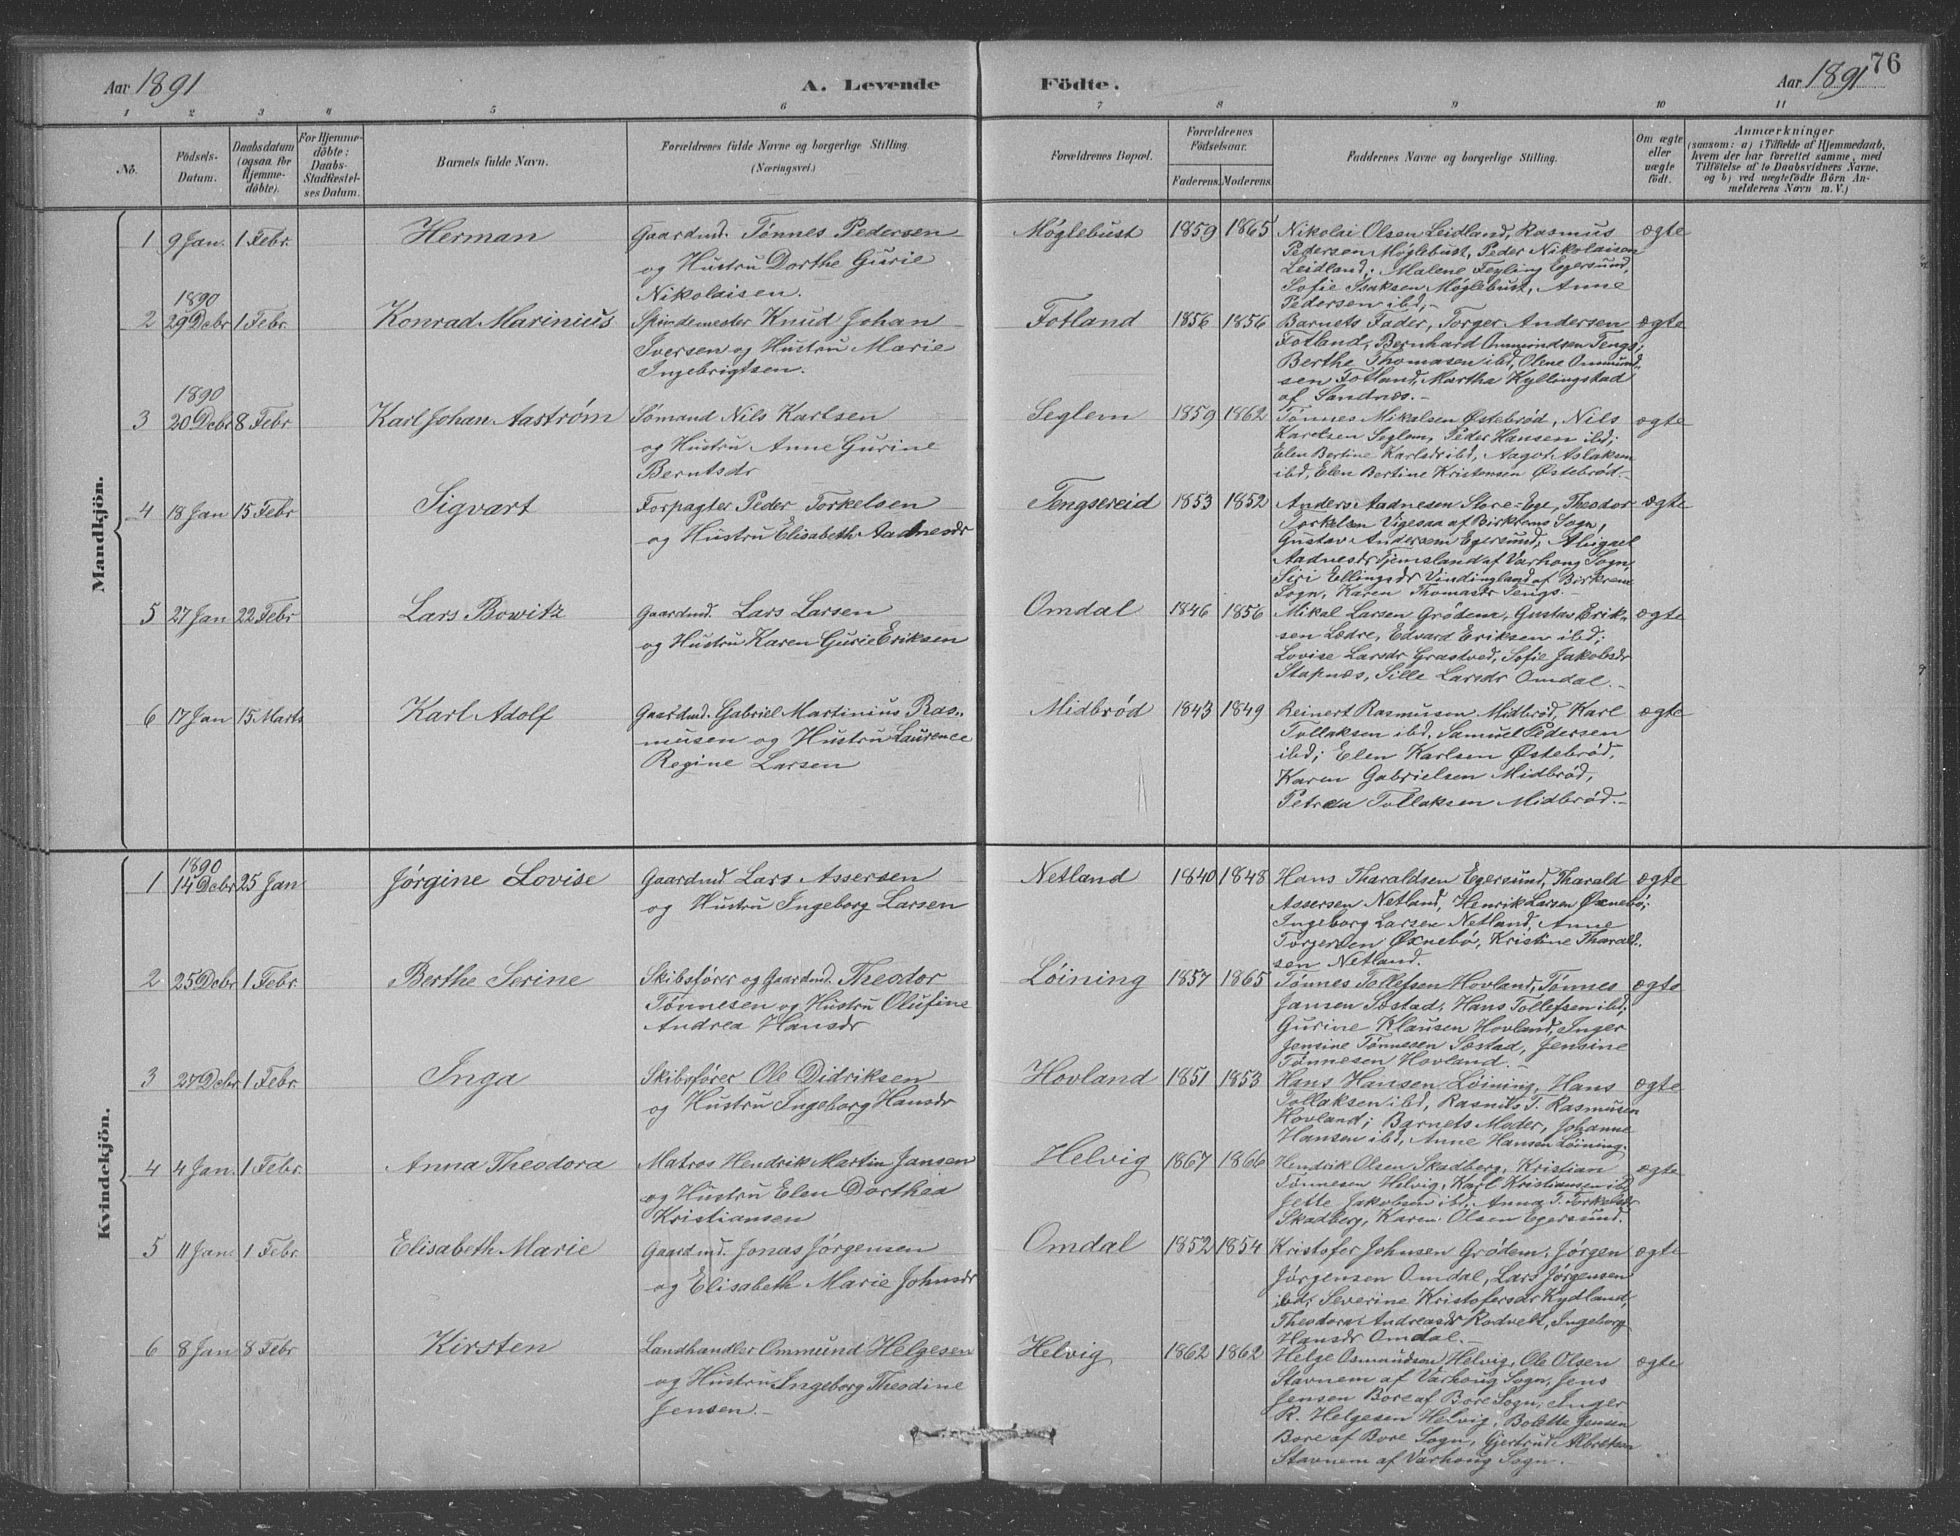 76
Aar 1891
A. Levende
Födte.
Aar 1891
1 2 3 4 5 6 7 8 9 10 11
No.
Födsels-
Datum.
Daabsdatum
(ogsaa for
Hjemme-
döbte).
For Hjemme-
döbte:
Daabs-
Stadfestel-
ses Datum.
Barnets fulde Navn.
Forældrenes fulde Navne og borgerlige Stilling.
(Næringsvei.)
Forældrenes Bopæl.
Forældrenes
Födselsaar.
Faderens. Moderens.
Faddernes Navne og borgerlige Stilling.
Om ægte
eller
uægte
födt.
Anmærkninger
(saasom: a) i Tilfælde af Hjemmedaab,
hvem der har forrettet samme, med
Tilföielse af to Daabsvidners Navne,
og b) ved uægtefödte Börn An-
melderens Navn m. V.)
Mandkjön.
1 9 Jan. 1 Febr. Herman
Gaardmd. Tønnes Pedersen
og Hustru Dorthe Gurie
Nikolaisen.
Møglebust 1859 1865
Nikolai Olsen Leidland, Rasmus
Pedersen Møglebust, Peder Nikolaisen
Leidland; Malene Feyling Egersund,
Sofie Isaksen Møglebust, Anne
Pedersen ibd.-
ægte
1890
2 29 Debr 1 Febr. Konrad Marinius
Spindemester Knud Johan
Iversen og Hustru Marie
Ingebrigtsen.
Fotland 1856 1856
Barnets Fader, Torger Andersen
Fotland, Bernhard Ommundsen Tengs;
Berthe Thomasen ibd, Olene Ommund-
sen Fotland, Martha Kyllingstad
af Sandnæs.-
ægte
1890
3 20 Debr 8 Febr Karl Johan Aastrøm
Sømand Nils Karlsen
og Hustru Anne Gurine
Berntsdr
Seglem 1859 1862
Tønnes Mikalsen Østebrød, Nils
Karelsen Seglem, Peder Hansen ibd;
Elen Bertine Karlsdr ibd, Aagot Aslaksen
ibd, Elen Bertine Kristensen Østebrød.-
ægte
4 18 Jan 15 Febr Sigvart
Forpagter Peder Torkelsen
og Hustru Elisabeth Aadnesdr
Tengsereid 1853 1852
Anders Aadnesen Store-Ege, Theodor
Torkelsen Vigesaa af Birkrems Sogn,
Gustav Andersen Egersund; Abigael
Aadnesdr Tjemsland af Varhoug Sogn,
Siri Ellingsdr Vindingland af Birkrem
Sogn, Karen Thomasdr Tengs.-
ægte
5 27 Jan 22 Febr Lars Bowitz
Gaardmd. Lars Larsen
og Hustru Karen Gurie Eriksen
Omdal 1846 1856
Mikal Larsen Grødem, Gustav Erik-
sen Lædre, Edvard Eriksen ibd;
Lovise Larsdr Grastved, Sofie Jakobsdr
Stapnæs, Sille Larsdr Omdal.-
ægte
6 17 Jan 15 Marts Karl Adolf
Gaardmd. Gabriel Martinius Ras-
musen og Hustru Laurence
Regine Larsen
Midbrød 1843 1849
Reinert Rasmusen Midbrød, Karl
Tollaksen ibd, Samuel Pedersen
ibd; Elen Karlsen Østebrød,
Karen Gabrielsen Midbrød,
Petrea Tollaksen Midbrød.-
ægte
Kvindekjön.
1890
1 14 Debr 25 Jan Jørgine Lovise
Gaardmd Lars Assersen
og Hustru Ingeborg Larsen
Netland 1840 1848
Hans Tharaldsen Egersund, Tharald
Assersen Netland, Henrik Larsen Øxnebø;
Ingeborg Larsen Netland, Anne
Torgersen Øxnebø, Kristine Tharald-
sen Netland.
ægte
2 25 Debr 1 Febr. Berthe Serine
Skibsfører og Gaardmd. Theodor
Tønnesen og Hustru Olufine
Andrea Hansdr
Løining 1857 1865
Tønnes Tollefsen Hovland, Tønnes
Jansen Søstad, Hans Tollefsen ibd;
Gurine Klausen Hovland, Inger
Jensine Tønnesen Søstad, Jensine
Tønnesen Hovland.-
ægte
3 24 Debr 1 Febr. Inga
Skibsfører Ole Didriksen
og Hustru Ingeborg Hansdr
Hovland 1851 1853
Hans Hansen Løining, Hans
Tollaksen ibd, Rasmus T. Rasmusen
Hovland; Barnets Moder, Johanne
Hansen ibd, Anne Hansen Løining.
ægte
4 4 Jan. 1 Febr. Anna Theodora
Matros Hendrik Martin Jansen
og Hustru Elen Dorthea
Kristiansen
Helvig 1867 1866
Hendrik Olsen Skadberg, Kristian
Tønnesen Helvig, Karl Kristiansen ibd
Jette Jakobsen ibd, Anna T. Torkelsdr
Skadberg, Karen Olsen Egersund.
ægte
5 11 Jan. 1 Febr. Elisabeth Marie
Gaardmd. Jonas Jørgensen
og Elisabeth Marie Johnsdr
Omdal 1852 1854
Kristofer Johnsen Grødem, Jørgen
Jørgensen Omdal, Lars Jørgensen
ibd; Severine Kristofersdr Kydland,
Theodora Andreasdr Rodvelt, Ingeborg
Hansdr Omdal.-
ægte
6 8 Jan 8 Febr Kirsten
Landhandler Ommund Helgesen
og Hustru Ingeborg Theodine
Jensen.-
Helvig 1862 1862
Helge Osmundsen Helvig, Ole Olsen
Stavnem af Varhoug Sogn, Jens
Jensen Bore af Bore Sogn, Inger
R. Helgesen Helvig, Bolette Jensen
Bore af Bore Sogn, Gjertrud
Stavnem af Varhoug Sogn.
ægte